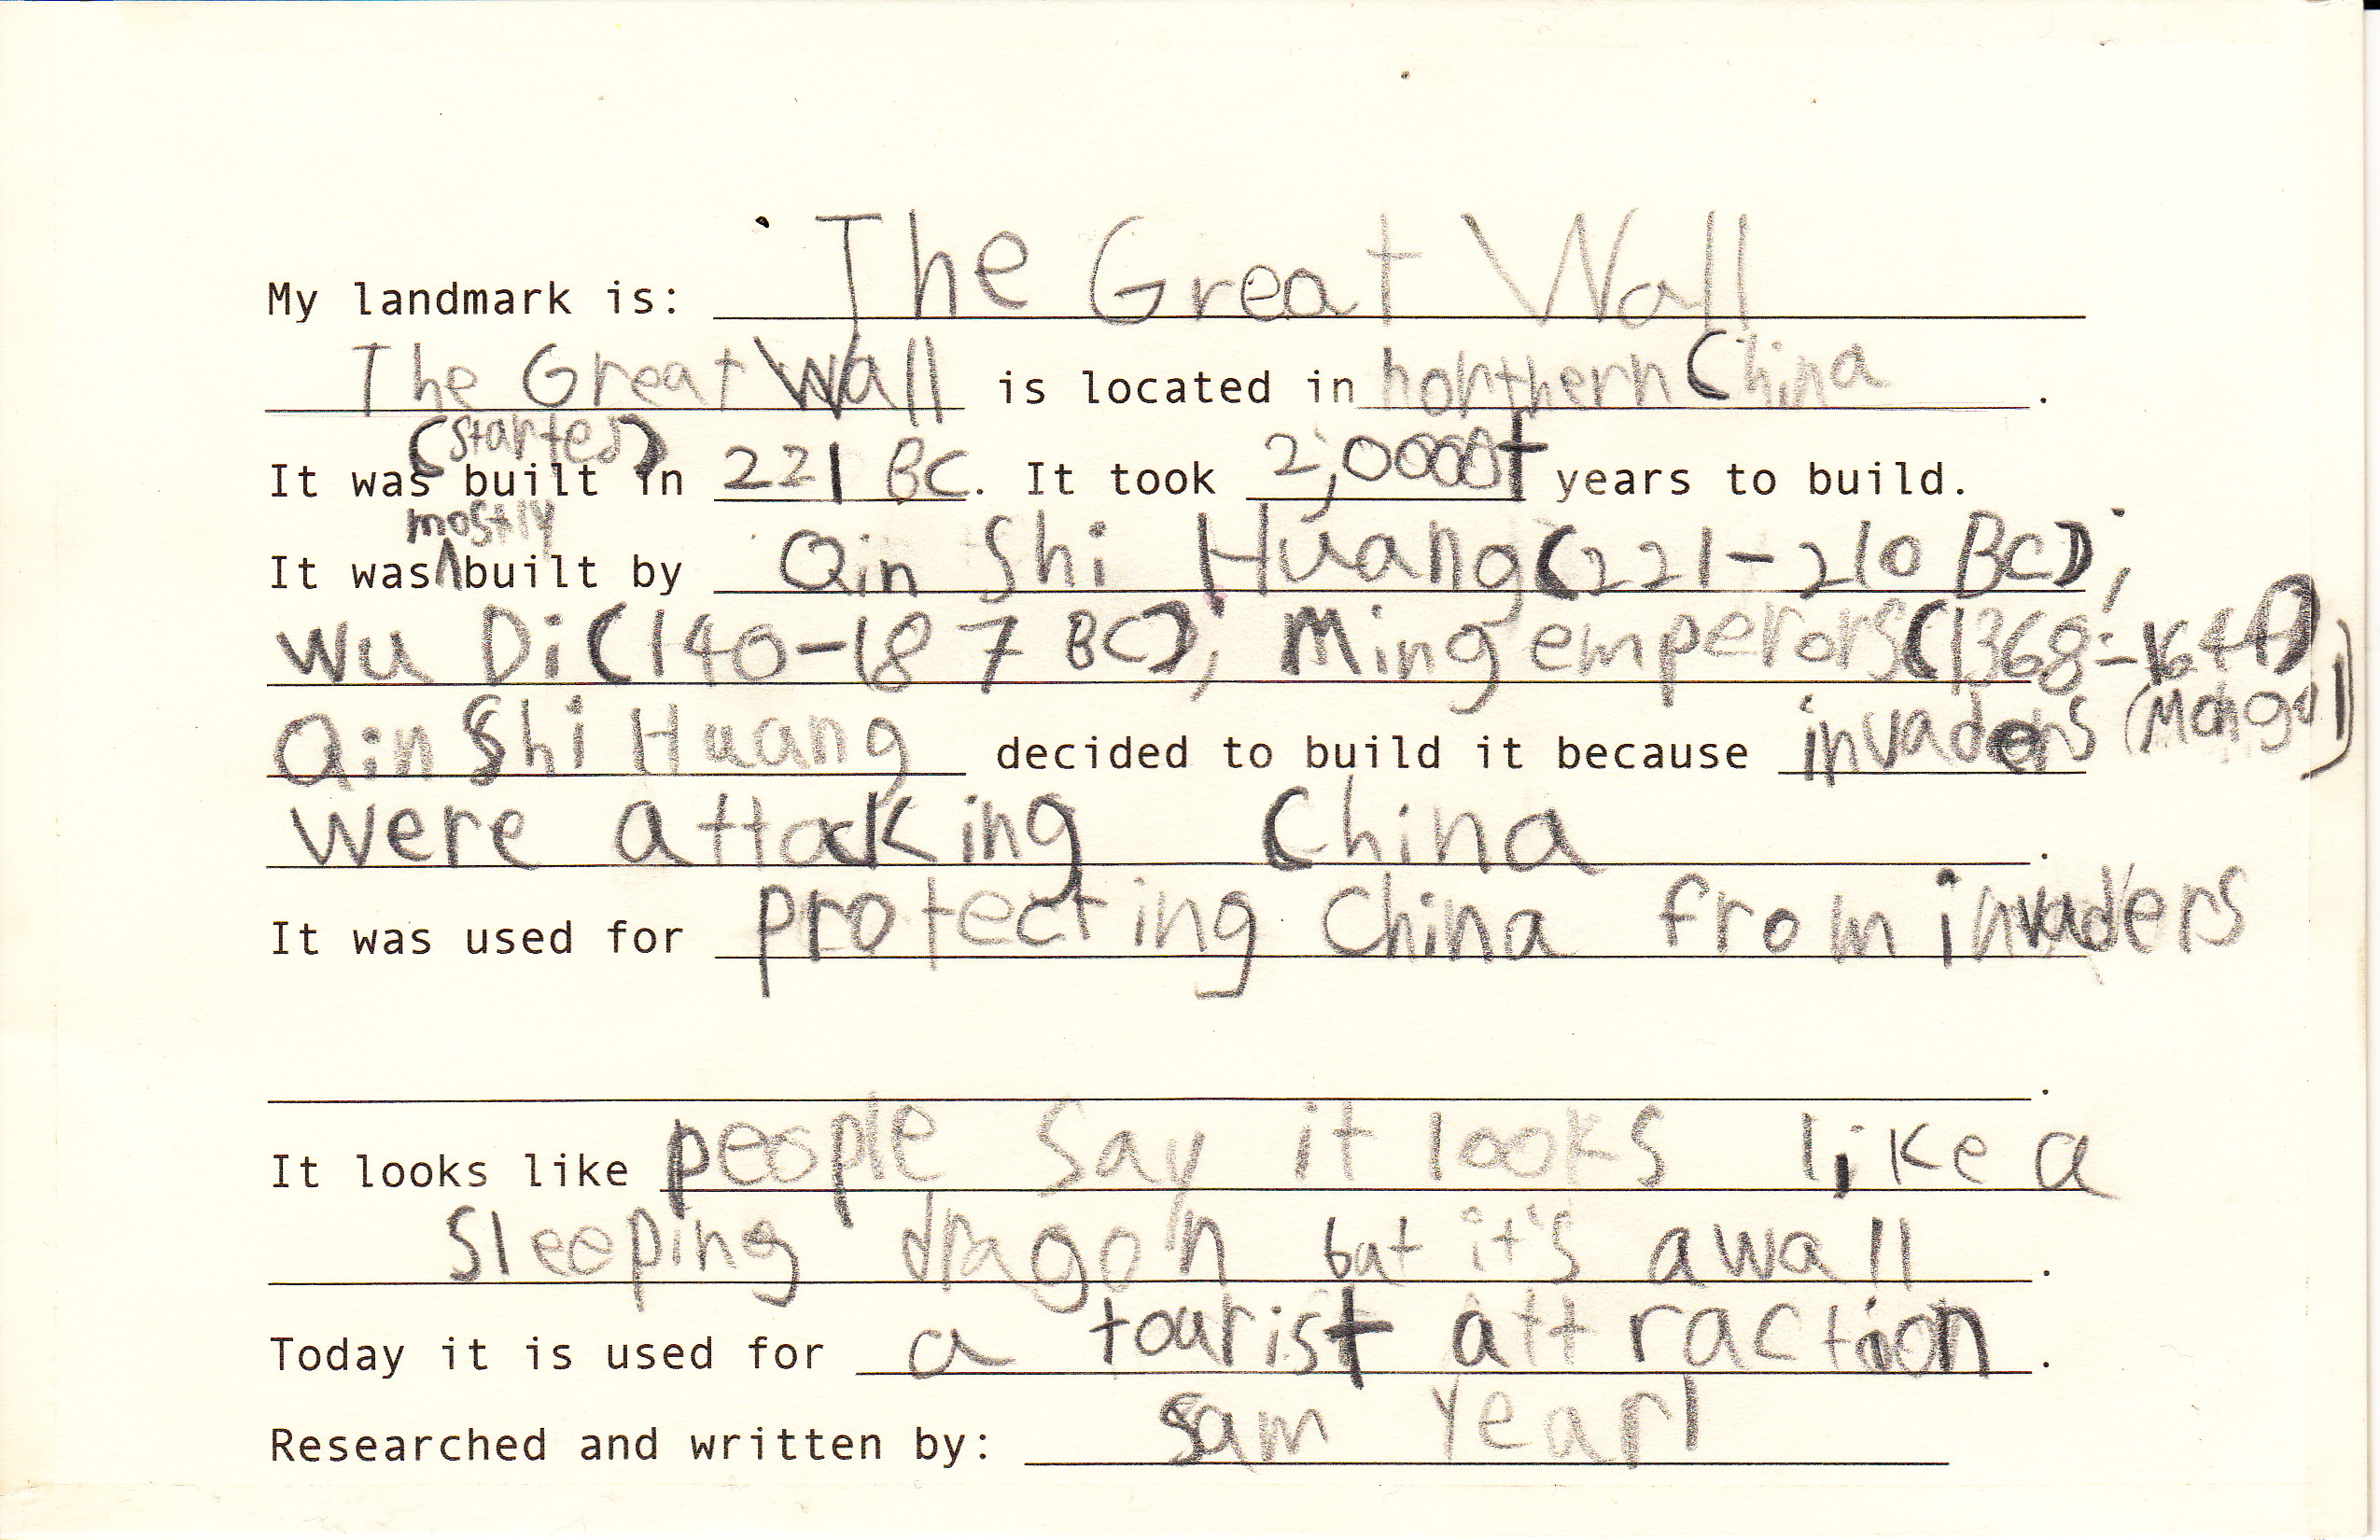 My landmark is: The Great Wall
The Great Wall is located in northern China.
(started)
It was built in 221 BC. It took 2,000+ years to build.
mostly
It was ^ built by Qin Shi Huang (221-210 BC);
Wu Di (140-187 BC); Ming emperors (1368-1644)
Qin Shi Huang decided to build it because invaders (Mongol)
were attacking China.
It was used for protecting China from invaders
.
It looks like people say it looks like a
sleeping dragon but it's a wall.
Today it is used for a tourist attraction.
Researched and written by: Sam Yearl